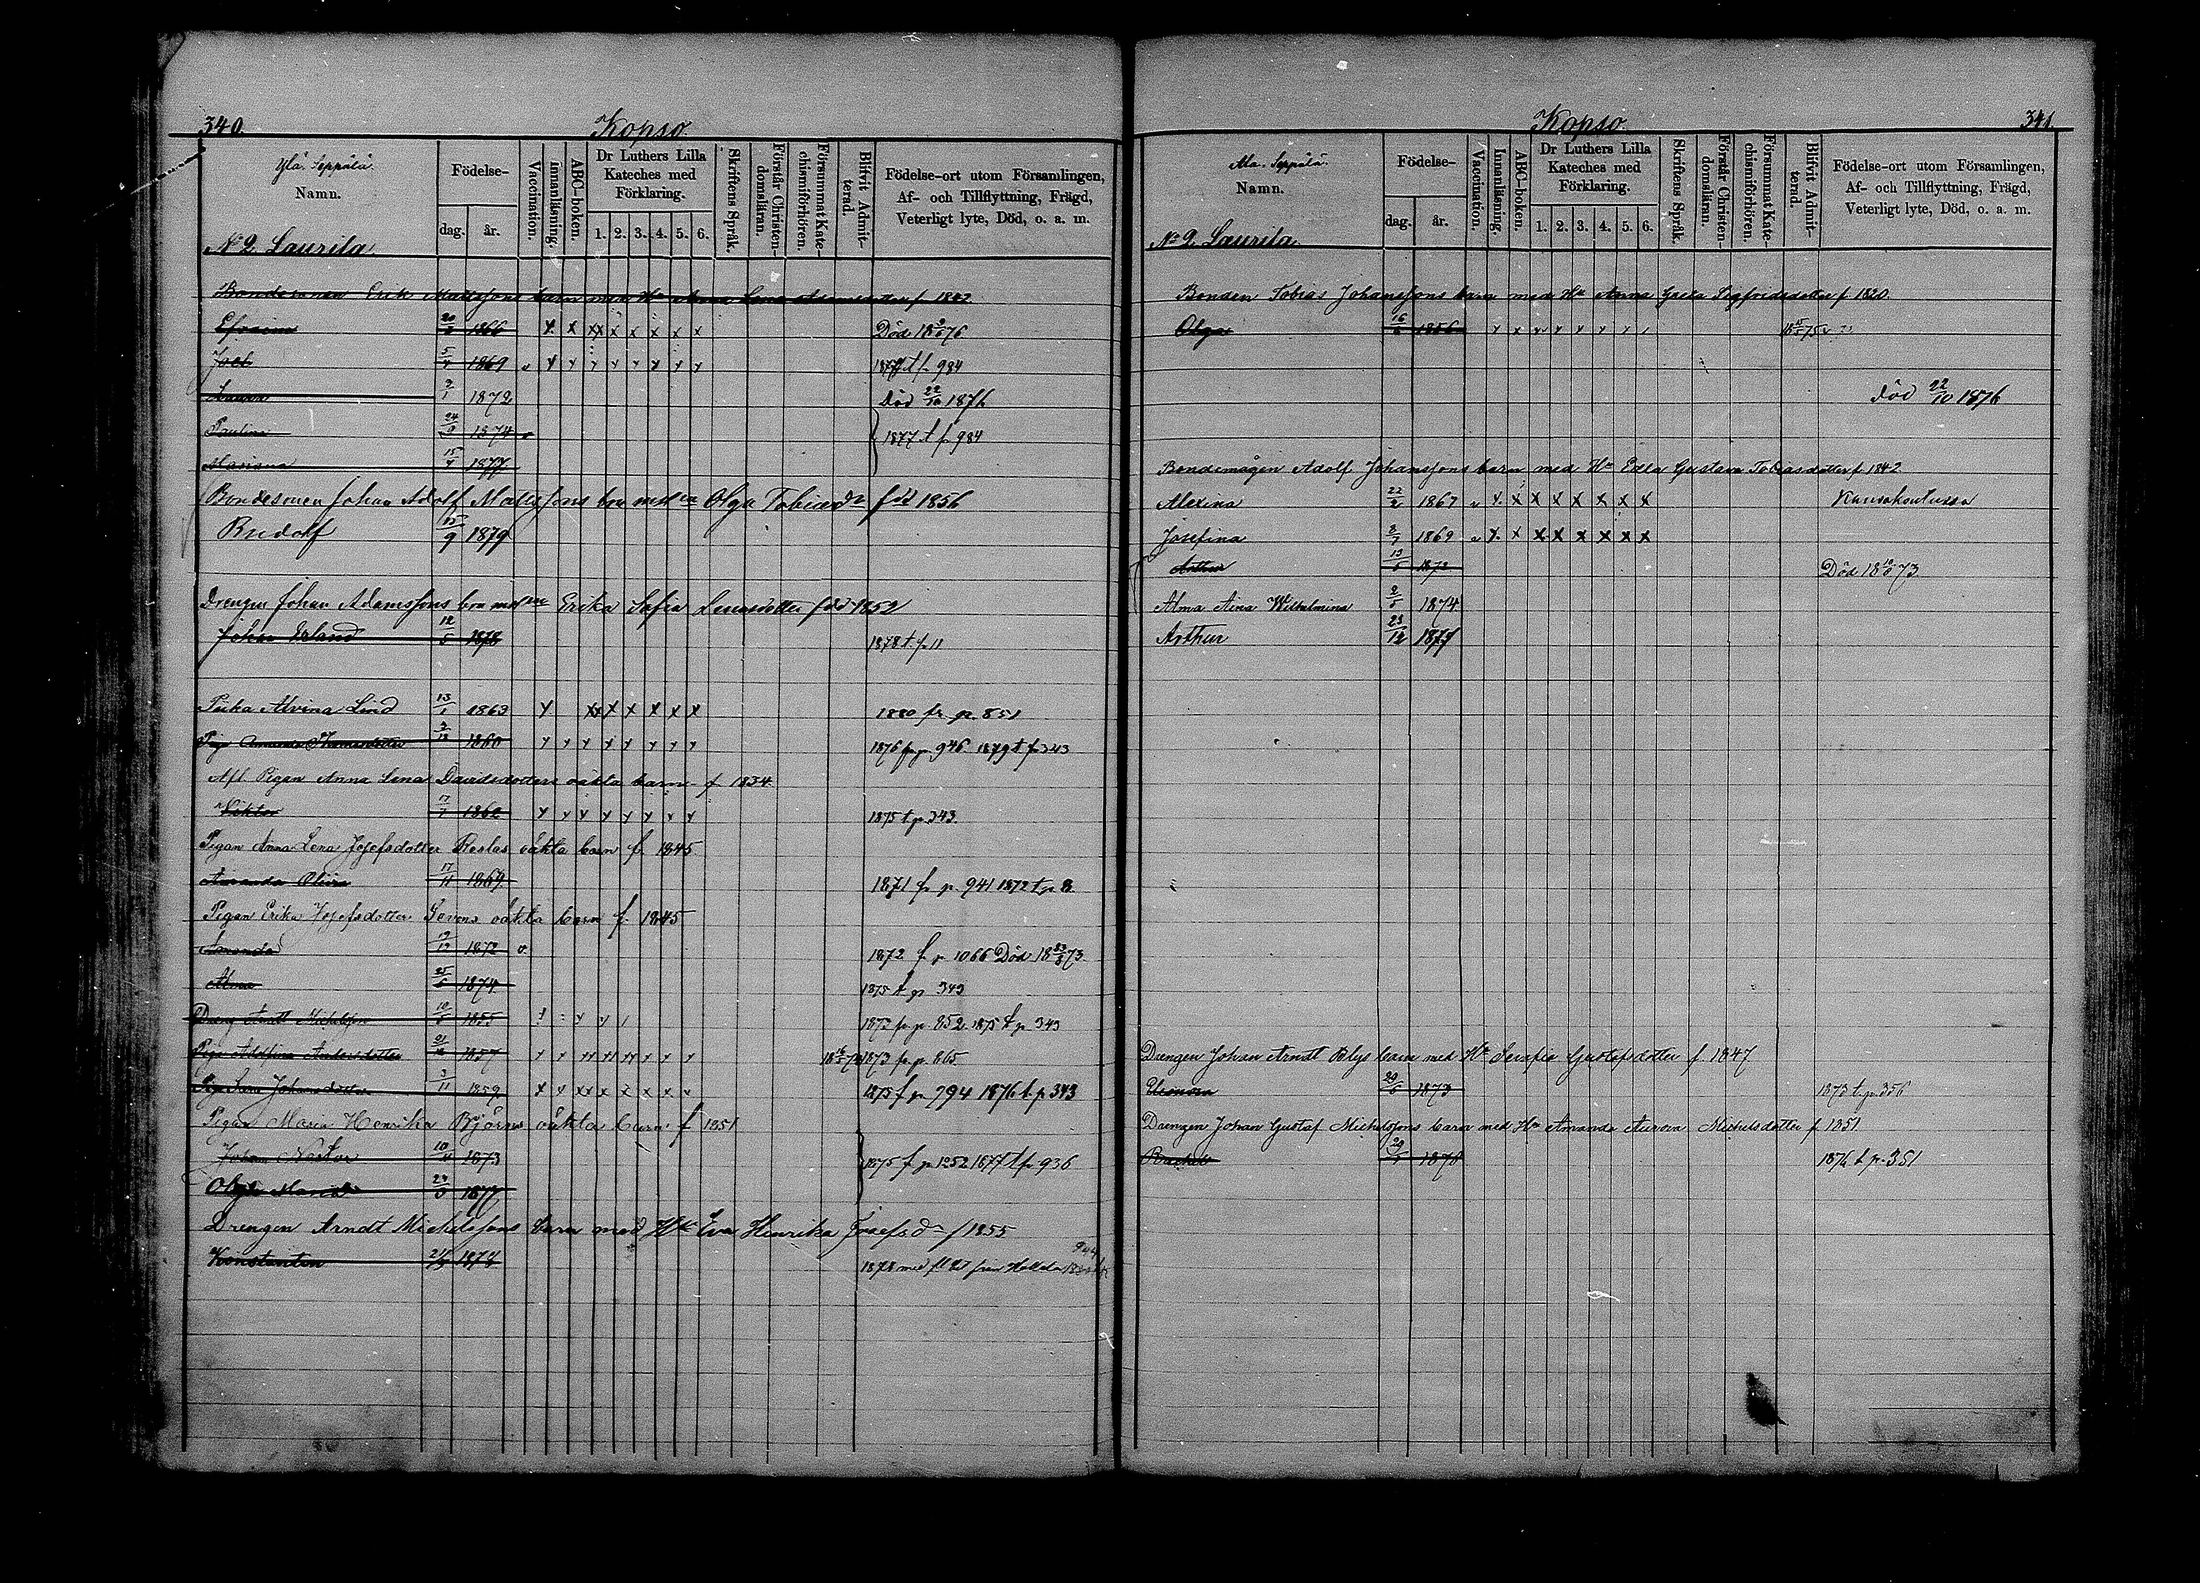 340.
Kopso
Ylä. Seppälä.
Namn.
Födelse-
dag. år.
Vaccination.
innanläsning.
ABC-boken.
Dr Luthers Lilla Kateches med Förklaring.
1. 2. 3. 4. 5. 6.
Skriftens Språk.
Förstår Christendomsläran.
Försummat Katechismiförhören.
Blifvit Admitterad.
Födelse-ort utom Församlingen,
Af- och Tillflyttning, Frägd,
Veterligt lyte, Död, o. a. m.
No 2. Laurila.
Erik Matssons barn med Hu Anna Lena f 1842
Efraim 1866 Död 76
Joel 1869 t p 984
1872 Död 22/10 1876
Paulina 24/9 1874 1877 t p 984
Mariana 15/4 1877
Bondesonen Johan Adolf Matssons barn med Olga Tobiasdr född 1856
Rudolf 15/9 1879
Drengen Johan Adamssons barn med Erika Sofia född 1852
Johan Erland 12/5 1878 1878 t. p. 11
Piika Alvina Lind 13/1 1863 1880 fr. p. 851
Amanda Thomasdotter 1860 1876 fr p 946. 1879 t p 343
Afl. Pigan Anna Lena Davidsdotters oäkta barn f. 1834
Viktor 17/7 1860 1875 t p 343.
Pigan Anna Lena Josefsdotter oäkta barn f. 1845
Amanda 17/11 1869 1871 fr p. 941 1872 t p 8
Pigan Erika Josefsdotter oäkta barn f. 1845
Amanda 1872 1872 f p 1066 Död 73
Alma 25/5 1874 1875 t p 343
Dreng Arndt Michelsson 1855 1873 fr p. 852. 1875 t p 343
Piga Adolfina Andersdotter 1857 1873 fr p. 865
Piga Johansdotter 3/11 1859 1875 f p 794 1876 t. p 343
Pigan Maria Henrika oäkta barn f 1851
Johan Nestor 10/4 1873 1875 f p 1052 1877 t p 936
Olga Maria 1877
Drengen Arndt Michelssons barn med Hu Eva Henrika Josefsdr f 1855
Konstantin 1878 1878 med från Hollola
341.
Kopso.
Ala. Seppälä.
Namn.
Födelse-
dag. år.
Vaccination.
Innanläsning.
ABC-boken.
Dr Luthers Lilla Kateches med Förklaring.
1. 2. 3. 4. 5. 6.
Skriftens Språk.
Förstår Christendomsläran.
Försummat Katechismiförhören.
Blifvit Admitterad.
Födelse-ort utom Församlingen,
Af- och Tillflyttning, Frägd,
Veterligt lyte, Död, o. a. m.
No 2. Laurila
Bonden Tobias Johanssons barn med Hu Anna Greta Sigfridsdotter f 1820.
Olga 1856
Död 22/10 1876
Bondemågen Adolf Johanssons barn med Hu Edla Gustava Tobiasdotter f 1842
Alexina 22/2 1867 Kansakoulussa
Josefina 1869
Arthur 13/5 1872 Död 73
Alma Aina Wilhelmina 1874
Arthur 23/12 1877
Drengen Johan Arndt Blys barn med Hu Serafia Gustafsdotter f 1847
Eleonora 1873 1873 t. p 356
Drengen Johan Gustaf Michelssons barn med Hu Amanda Aurora Michelsdotter f 1851
Rachel 1876 t. p. 351